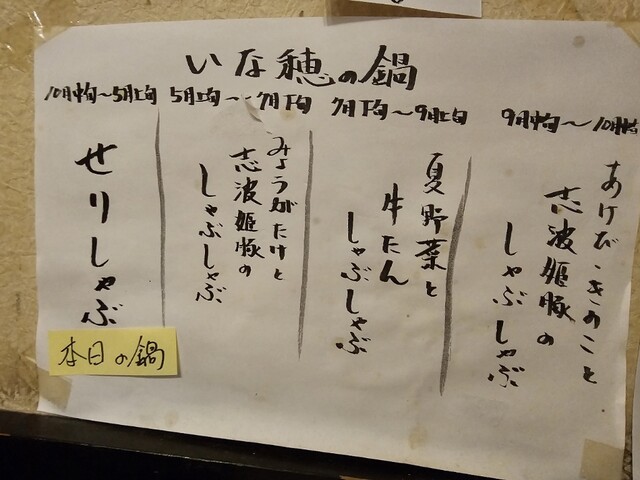 いな穂の鍋
10月中旬〜5月上旬
せりしゃぶ
本日の鍋
5月上旬〜7月下旬
みょうがたけと
志波姫豚の
しゃぶしゃぶ
7月下旬〜9月上旬
夏野菜と
牛たん
しゃぶしゃぶ
9月中旬〜10月中旬
あけび・きのこと
志波姫豚の
しゃぶしゃぶ